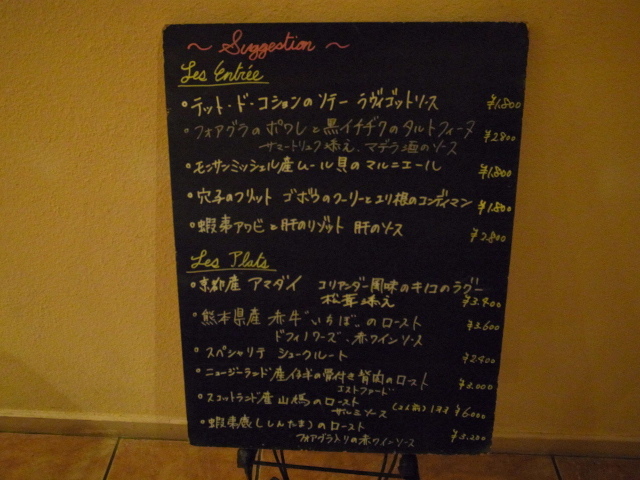 ～ Suggestion ～
Les Entrée
・テット・ド・コションのソテー ラヴィゴットソース ¥1,800
・フォアグラのポワレと黒イチヂクのタルトフィーヌ ¥2800
サマートリュフ添え、マデラ酒のソース
・モンサンミッシェル産ムール貝のマルニエール ¥1,800
・穴子のフリット ゴボウのクーリーとユリ根のコンディマン ¥1,800
・蝦夷アワビと肝のリゾット 肝のソース ¥2,800
Les Plats
・京都産アマダイ コリアンダー風味のキノコのラグー
松茸添え ¥3,400
・熊本県産 赤牛"いちぼ"のロースト ¥3,600
ドフィノワーズ、赤ワインソース
・スペシャリテ シュークルート ¥2900
・ニュージーランド産仔羊の骨付き背肉のロースト ¥3,000
エストファード
・スコットランド産山鳩のロースト ¥6000
サルミソース
・蝦夷鹿(しんたま)のロースト
フォアグラ入りの赤ワインソース ¥3,200